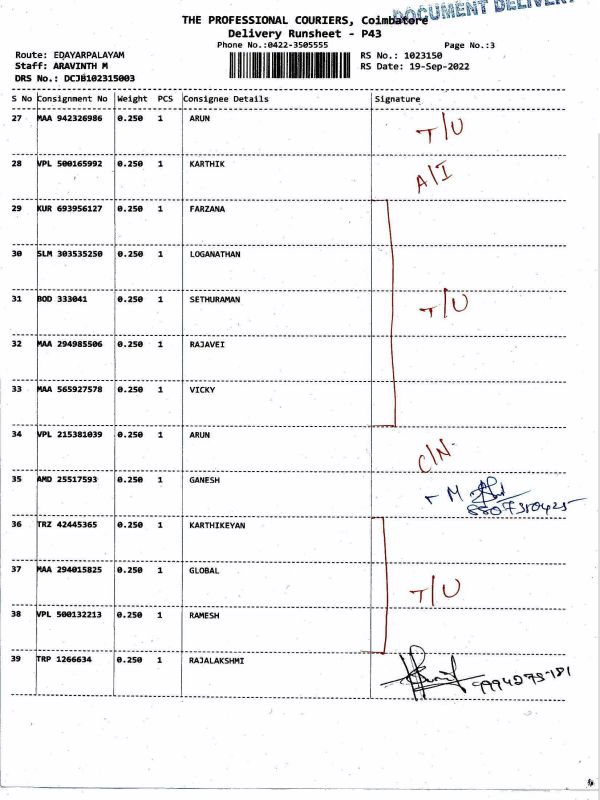 DOCUMENT DELIVERY
THE PROFESSIONAL COURIERS, Coimbatore
Delivery Runsheet - P43
Phone No.:0422-3505555 Page No.:3
Route: EDAYARPALAYAM RS No.: 1023150
Staff: ARAVINTH M RS Date: 19-Sep-2022
DRS No.: DCJB102315003
S No Consignment No Weight PCS Consignee Details Signature
27 MAA 942326986 0.250 1 ARUN T/U
28 VPL 500165992 0.250 1 KARTHIK A/I
29 KUR 693956127 0.250 1 FARZANA
30 SLM 303535250 0.250 1 LOGANATHAN
31 BOD 333041 0.250 1 SETHURAMAN T/U
32 MAA 294985506 0.250 1 RAJAVEI
33 MAA 565927578 0.250 1 VICKY
34 VPL 215381039 0.250 1 ARUN C/N.
35 AMD 25517593 0.250 1 GANESH
36 TRZ 42445365 0.250 1 KARTHIKEYAN
37 MAA 294015825 0.250 1 GLOBAL T/U
38 VPL 500132213 0.250 1 RAMESH
39 TRP 1266634 0.250 1 RAJALAKSHMI